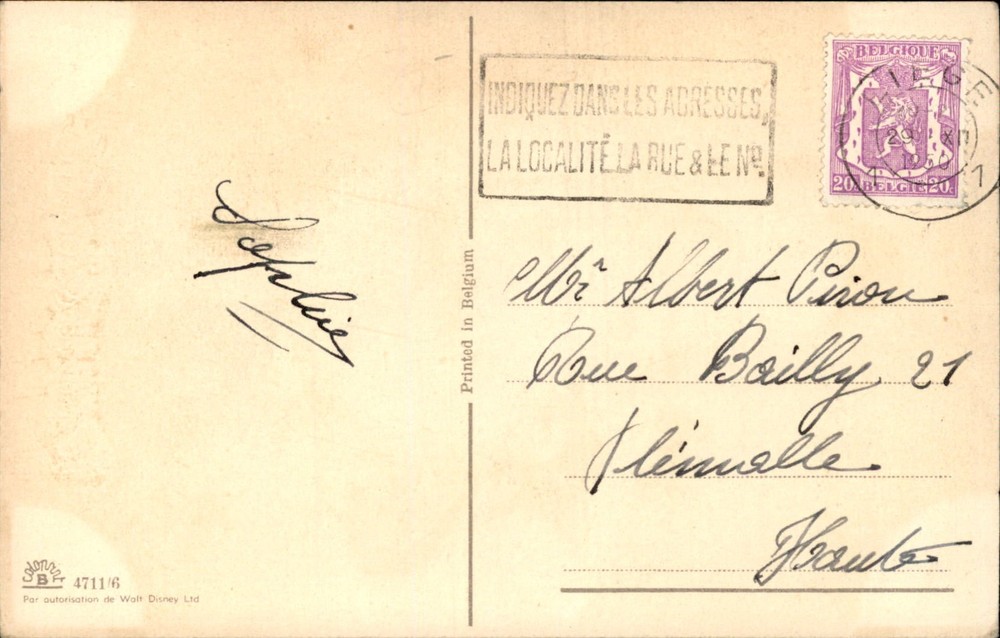 INDIQUEZ DANS LES ADRESSES,
LA LOCALITÉ, LA RUE & LE No.
BELGIQUE
20c BELGIE 20c
LIEGE
1 1
29 XII
Sophie
Printed in Belgium
Mr Albert Piron
Rue Bailly 21
Flémalle
Haute
COLORPRINT
B
4711/6
Par autorisation de Walt Disney Ltd